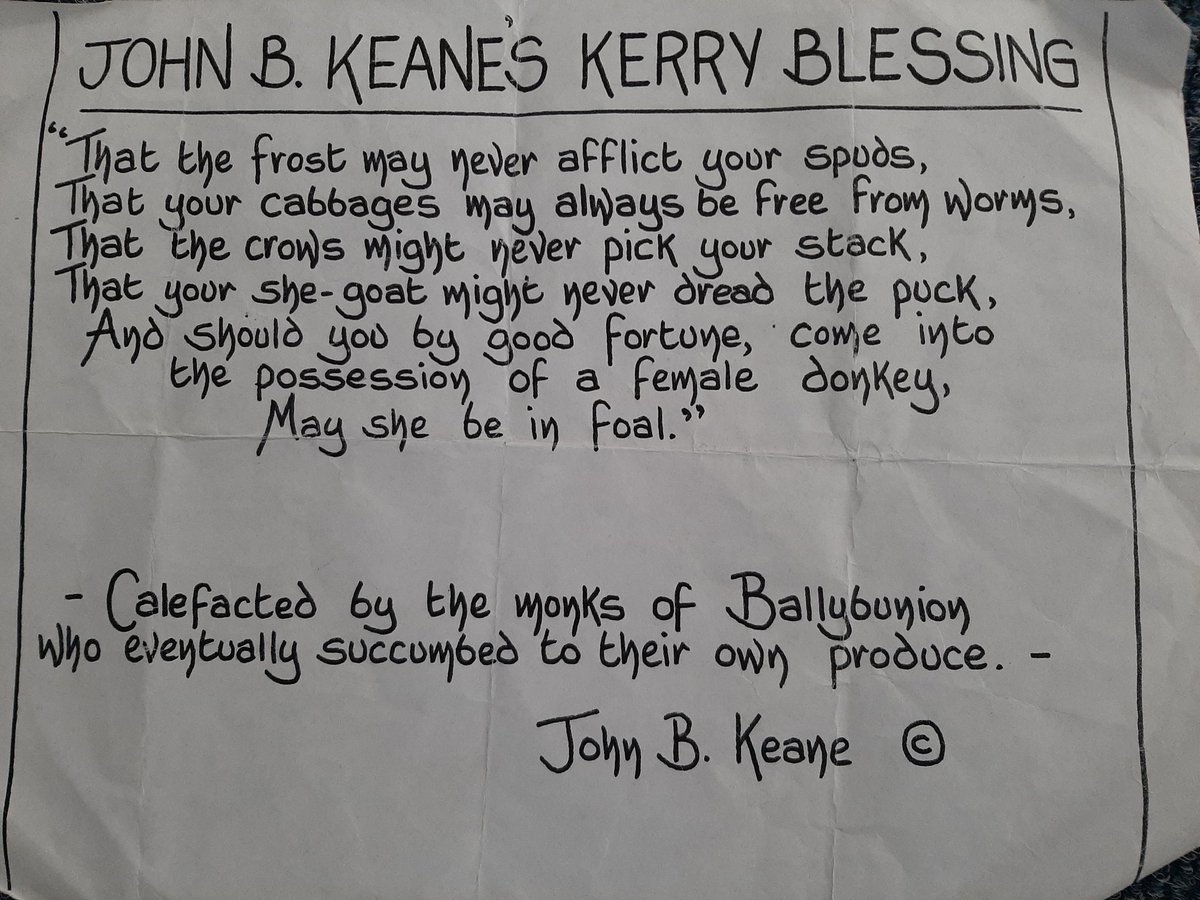 JOHN B. KEANE'S KERRY BLESSING
"That the frost may never afflict your spuds,
That your cabbages may always be free from worms,
That the crows might never pick your stack,
That your she-goat might never dread the puck,
And should you by good fortune, come into
the possession of a female donkey,
May she be in foal."
- Calefacted by the monks of Ballybunion
who eventually succumbed to their own produce. -
John B. Keane ©